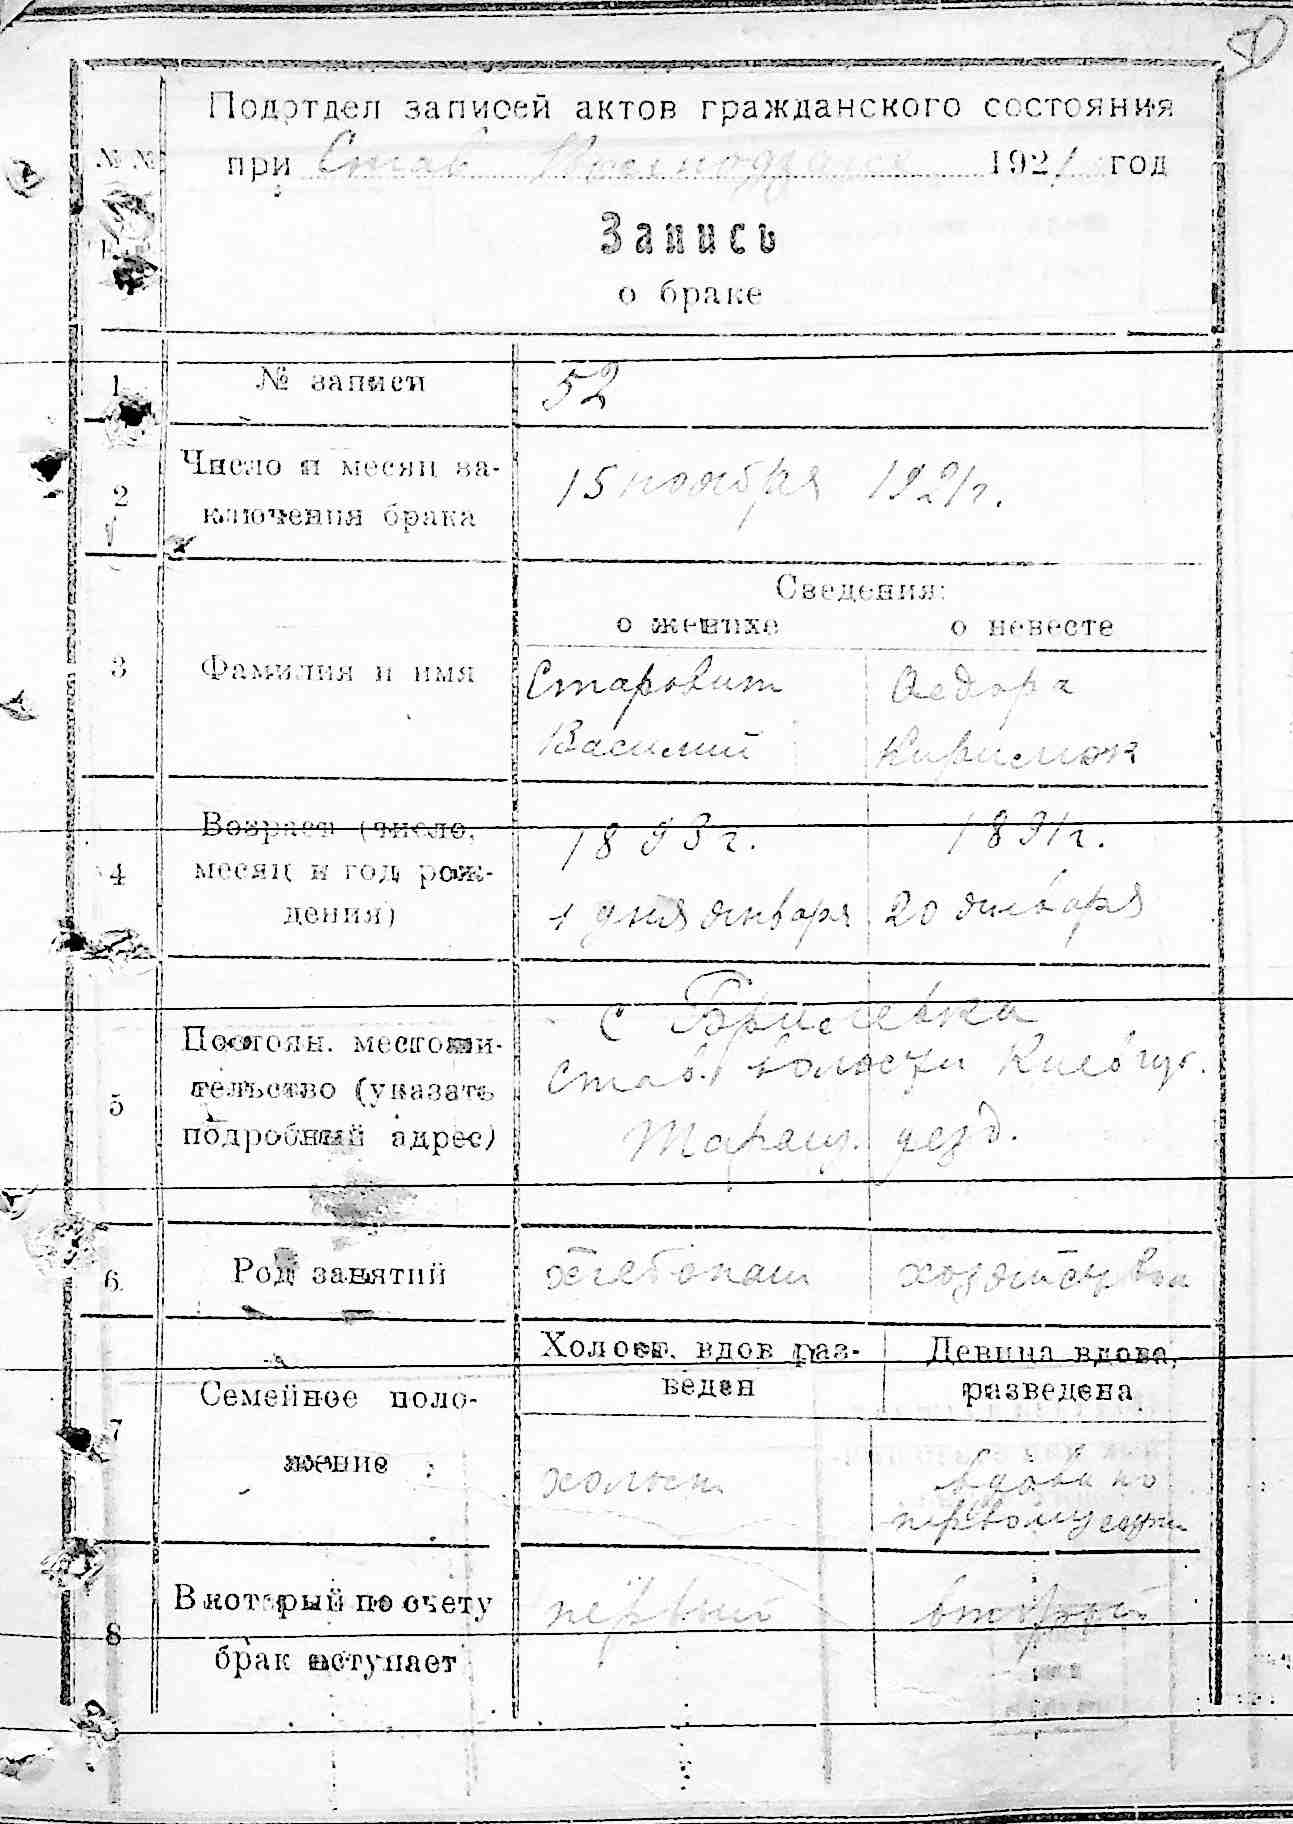 Подотдел записей актов гражданского состояния
при Став 1921 год
№ №
Запись
о браке
1 № записи 52
2 Число и месяц за-
ключения брака
15 ноября 1921 г.
Сведения:
о женихе о невесте
3 Фамилия и имя
Старовит Федора
Василий
4 Возраст (число,
месяц и год рож-
дения)
1893 г. 1891 г.
1 дня января 20 декабря
5 Постоян. местожи-
тельство (указать
подробный адрес)
с
Став. волости Киев губ.
Таращ. уезд.
6 Род занятий
хлебопаш хозяйство
7 Семейное поло-
жение
Холост. вдов раз-
веден
Девица вдова,
разведена
холост вдова по
первому
8 В который по счету
брак вступает
первый второй